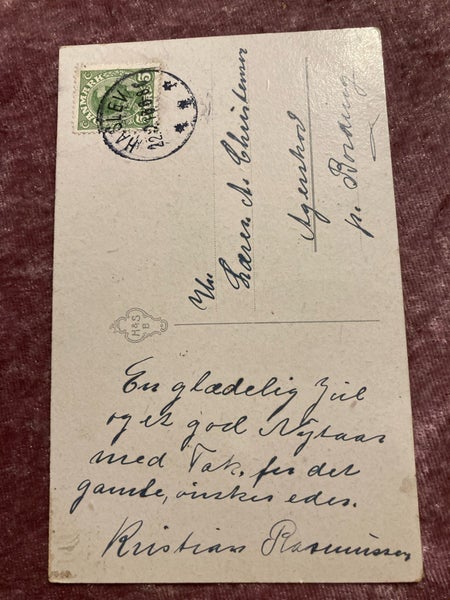 DANMARK 5
HASLEV
22.12.
Hr.
Lærer A. Christensen
Agerskov
pr. Bording
H&S
B
En glædelig Jul
og et god Nytaar
med Tak for det
gamle, ønskes edes.
Kristian Rasmussen